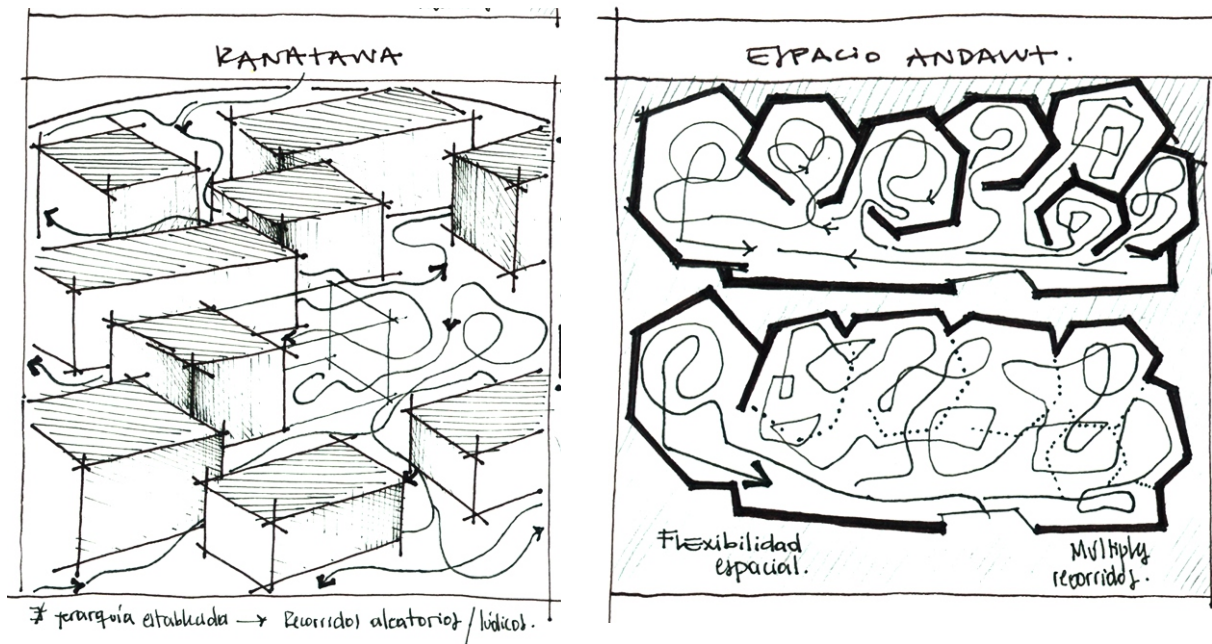 KANAZAWA
∄ jerarquía establecida → Recorridos aleatorios / lúdicos.
ESPACIO ANDANT.
Flexibilidad
espacial.
Multiply
recorridos.